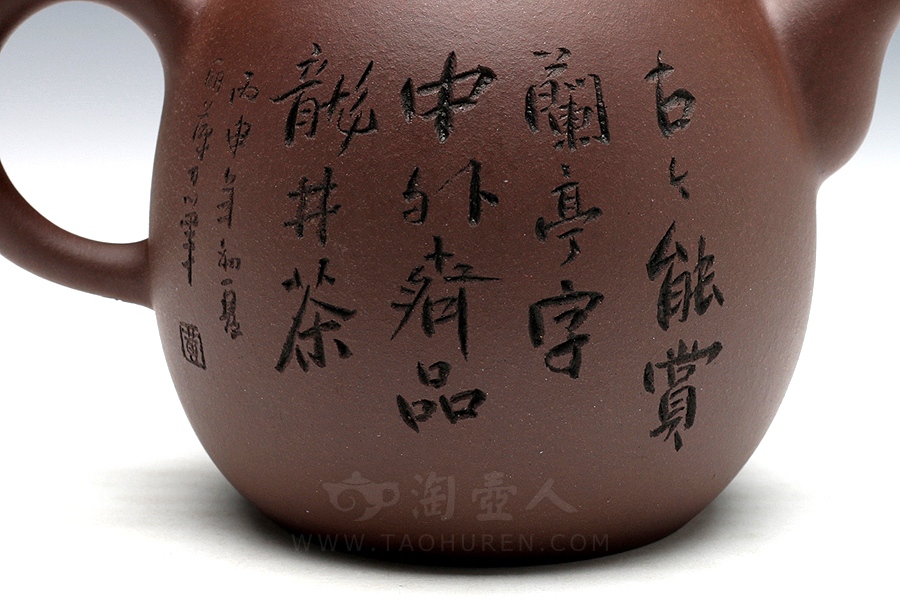 古今能賞
蘭亭字
中外齊品
龍井茶
丙申年初夏
淘壺人
WWW.TAOHUREN.COM